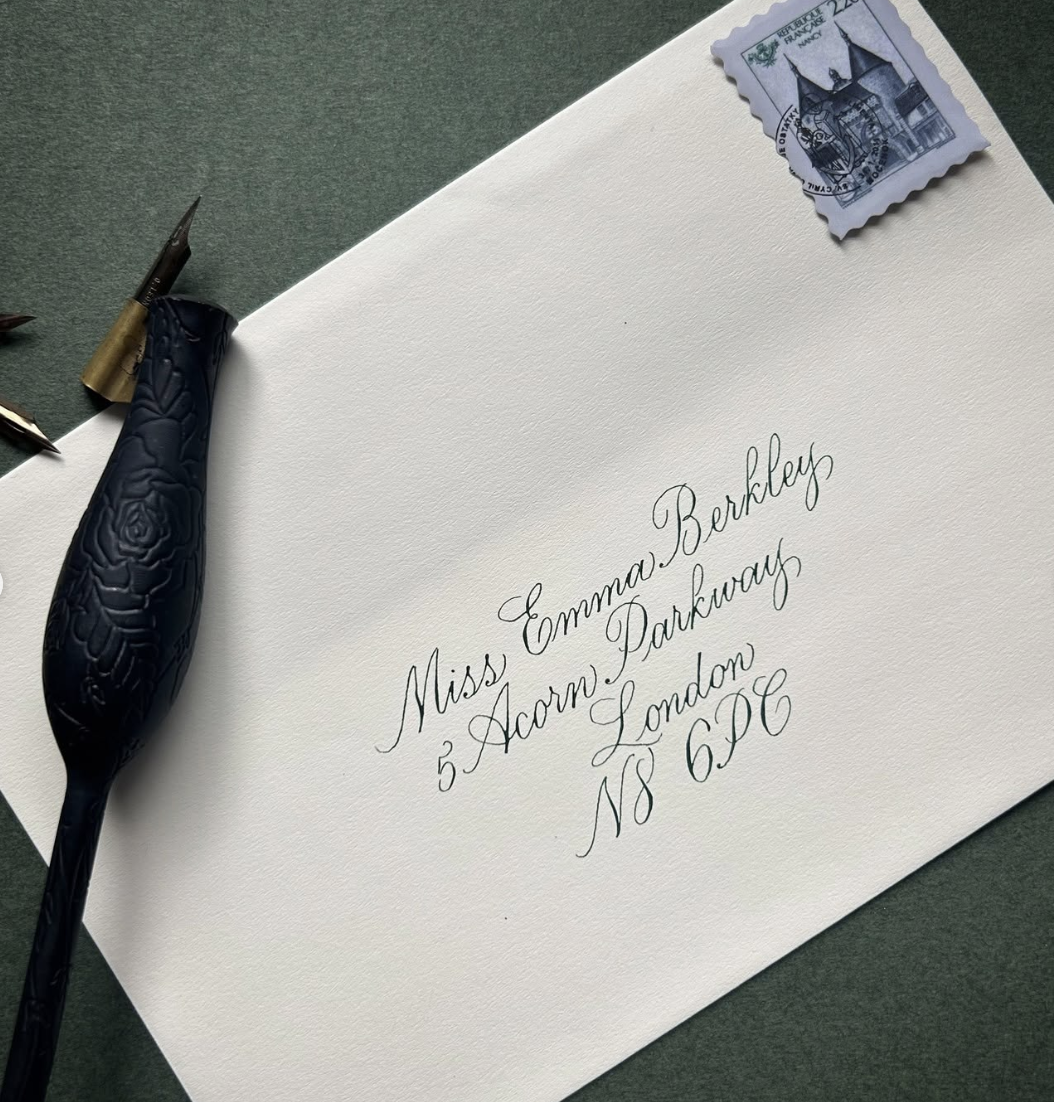 RÉPUBLIQUE
FRANÇAISE
NANCY
2,20
Miss Emma Berkley
5 Acorn Parkway
London
N8 6PC